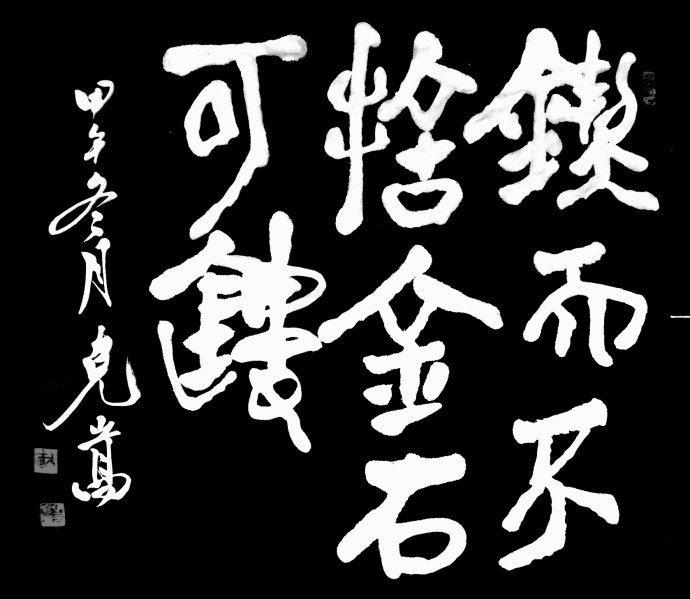 鍥而不
捨金石
可鏤
甲午冬月克嵩